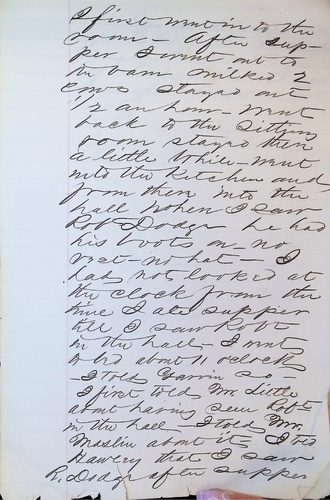 I first went in to the
room - After sup-
per I went out to
the barn milked 2
cows stayed out
1/2 an hour - went
back to the sitting
room stayed then
a little while - went
into the kitchen and
from then into the
hall when I saw
Rob Dodge he had
his boots on - no
vest - no hat - I
had not looked at
the clock from the
time I ate supper
till I saw Robt
in the hall - I went
to bed about 11 o'clock
- I told so -
I first told Mr. Little
about having seen Robt
in the hall - I told Mr.
Maslin about it - I told
that I saw
R. Dodge after supper